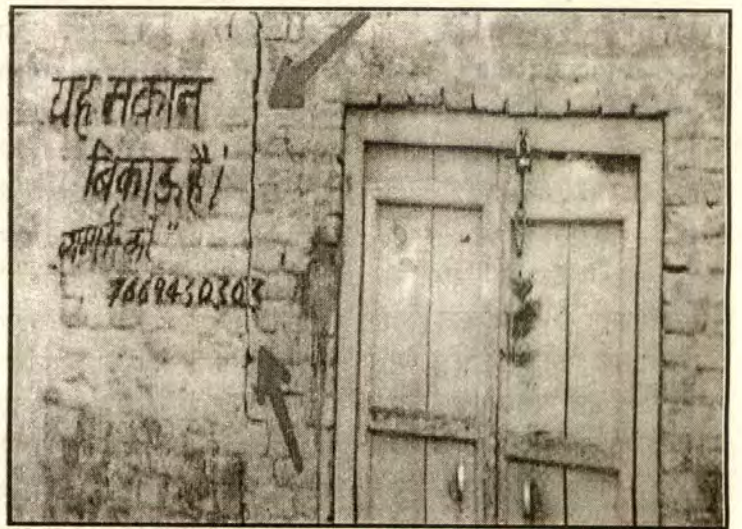 यह मकान
बिकाऊ है।
सम्पर्क करें
7669430303